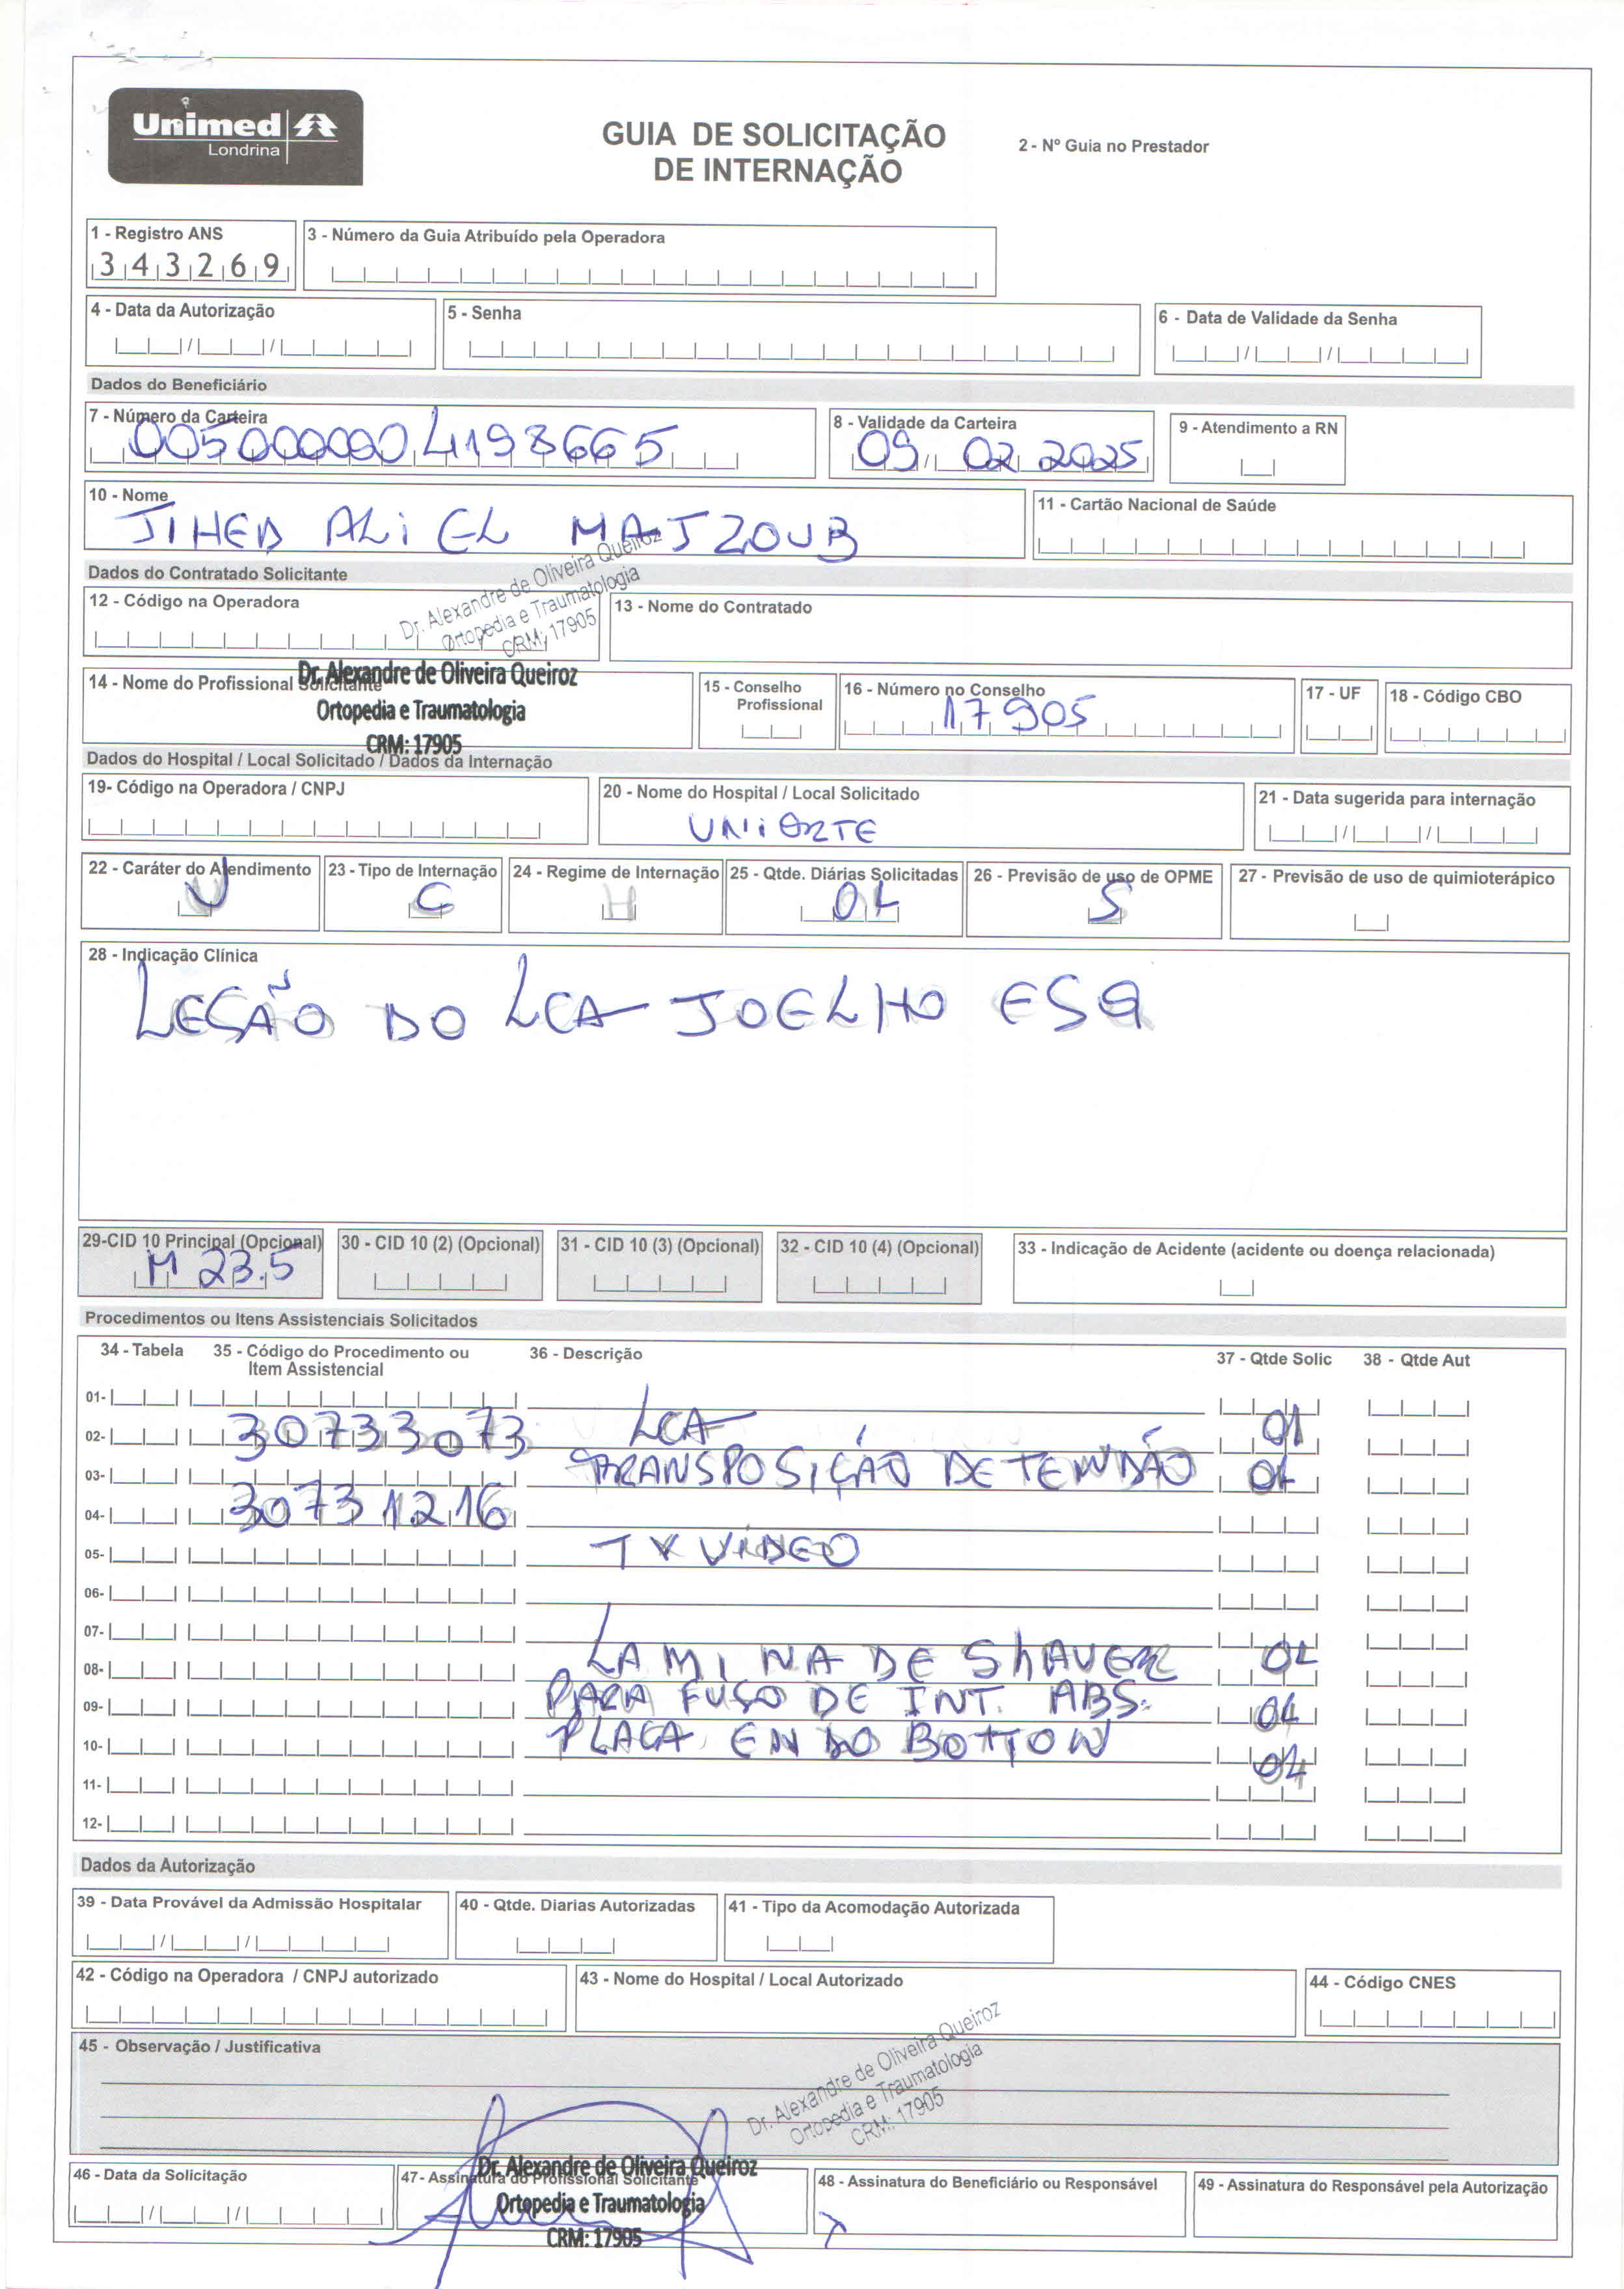 Unimed
Londrina
GUIA DE SOLICITAÇÃO
DE INTERNAÇÃO
2 - Nº Guia no Prestador
1 - Registro ANS
343269
3 - Número da Guia Atribuído pela Operadora
4 - Data da Autorização
5 - Senha
6 - Data de Validade da Senha
Dados do Beneficiário
7 - Número da Carteira
8 - Validade da Carteira
9 - Atendimento a RN
09 02 2025
10 - Nome
JIHED ALi EL MAJZOUB
11 - Cartão Nacional de Saúde
Dados do Contratado Solicitante
12 - Código na Operadora
Dr. Alexandre de Oliveira Queiroz
Ortopedia e Traumatologia
CRM: 17905
13 - Nome do Contratado
14 - Nome do Profissional Solicitante
Dr. Alexandre de Oliveira Queiroz
Ortopedia e Traumatologia
CRM: 17905
15 - Conselho
Profissional
16 - Número no Conselho
17905
17 - UF
18 - Código CBO
Dados do Hospital / Local Solicitado / Dados da Internação
19- Código na Operadora / CNPJ
20 - Nome do Hospital / Local Solicitado
UNIORTE
21 - Data sugerida para internação
22 - Caráter do Atendimento
23 - Tipo de Internação
24 - Regime de Internação
25 - Qtde. Diárias Solicitadas
26 - Previsão de uso de OPME
27 - Previsão de uso de quimioterápico
U
C
H
01
S
28 - Indicação Clínica
LESÃO DO LCA JOELHO ESQ
29-CID 10 Principal (Opcional)
M 23.5
30 - CID 10 (2) (Opcional)
31 - CID 10 (3) (Opcional)
32 - CID 10 (4) (Opcional)
33 - Indicação de Acidente (acidente ou doença relacionada)
Procedimentos ou Itens Assistenciais Solicitados
34 - Tabela
35 - Código do Procedimento ou
Item Assistencial
36 - Descrição
37 - Qtde Solic
38 - Qtde Aut
01-
02- 30733073 LCA 01
03- TRANSPOSIÇÃO DE TENDÃO 01
04- 30731216
05- TX VIDEO
06-
07-
08- LAMINA DE ShAVER 01
09- PARAFUSO DE INT. ABS. 01
10- PLACA ENDO BOTTOW 01
11-
12-
Dados da Autorização
39 - Data Provável da Admissão Hospitalar
40 - Qtde. Diarias Autorizadas
41 - Tipo da Acomodação Autorizada
42 - Código na Operadora / CNPJ autorizado
43 - Nome do Hospital / Local Autorizado
44 - Código CNES
45 - Observação / Justificativa
Dr. Alexandre de Oliveira Queiroz
Ortopedia e Traumatologia
CRM: 17905
46 - Data da Solicitação
47- Assinatura do Profissional Solicitante
Dr. Alexandre de Oliveira Queiroz
Ortopedia e Traumatologia
CRM: 17905
48 - Assinatura do Beneficiário ou Responsável
49 - Assinatura do Responsável pela Autorização